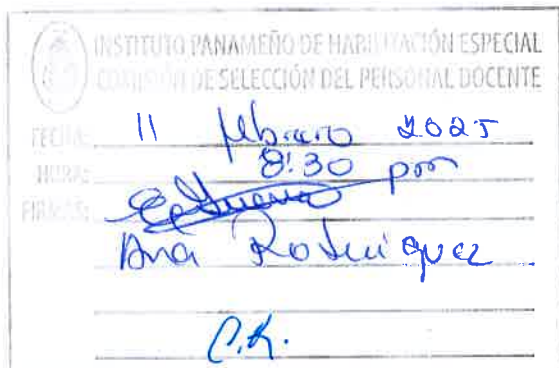 INSTITUTO PANAMEÑO DE HABILITACIÓN ESPECIAL
COMISIÓN DE SELECCIÓN DEL PERSONAL DOCENTE
FECHA: 11 febrero 2025
HORA: 8:30 pm
FIRMAS:
Ana Rodriguez
C.R.